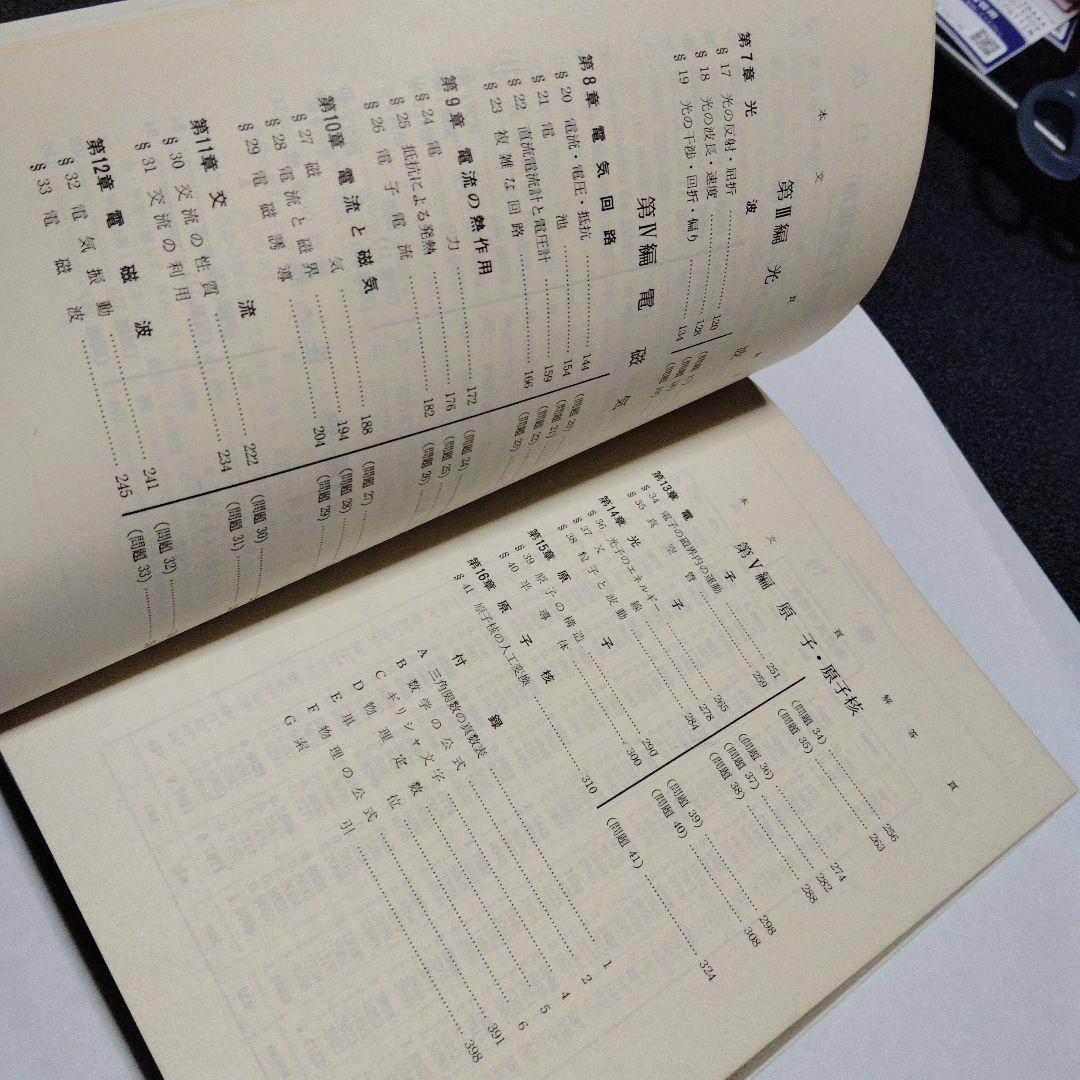 本文 頁
第Ⅲ編 光波
第7章 光
§17 光の反射・屈折 120 (問題 17)
§18 光の波長・速度 128 (問題 18)
§19 光の干渉・回折・偏り 134 (問題 19)
第Ⅳ編 電磁気
第8章 電気回路
§20 電流・電圧・抵抗 144 (問題 20)
§21 電池 154 (問題 21)
§22 直流電流計と電圧計 159 (問題 22)
§23 複雑な回路 166 (問題 23)
第9章 電流の熱作用
§24 電力 172 (問題 24)
§25 抵抗による発熱 176 (問題 25)
§26 電子電流 182 (問題 26)
第10章 電流と磁気
§27 磁気 188 (問題 27)
§28 電流と磁界 194 (問題 28)
§29 電磁誘導 204 (問題 29)
第11章 交流
§30 交流の性質 222 (問題 30)
§31 交流の利用 234 (問題 31)
第12章 電磁波
§32 電気振動 241 (問題 32)
§33 電磁波 245 (問題 33)
本文 頁 解答 頁
第Ⅴ編 原子・原子核
第13章 電子
§34 電子の磁界内の運動 251 (問題 34) 256
§35 真空管 259 (問題 35) 263
第14章 光子
§36 光子のエネルギー 265 (問題 36) 274
§37 X線 278 (問題 37) 282
§38 粒子と波動 284 (問題 38) 288
第15章 原子
§39 原子の構造 290 (問題 39) 298
§40 半導体 300 (問題 40) 308
第16章 原子核
§41 原子核の人工変換 310 (問題 41) 324
付録
A 三角関数の真数表 1
B 数学の公式 2
C ギリシャ文字 4
D 物理定数 5
E 単位 6
F 物理の公式 391
G 索引 398